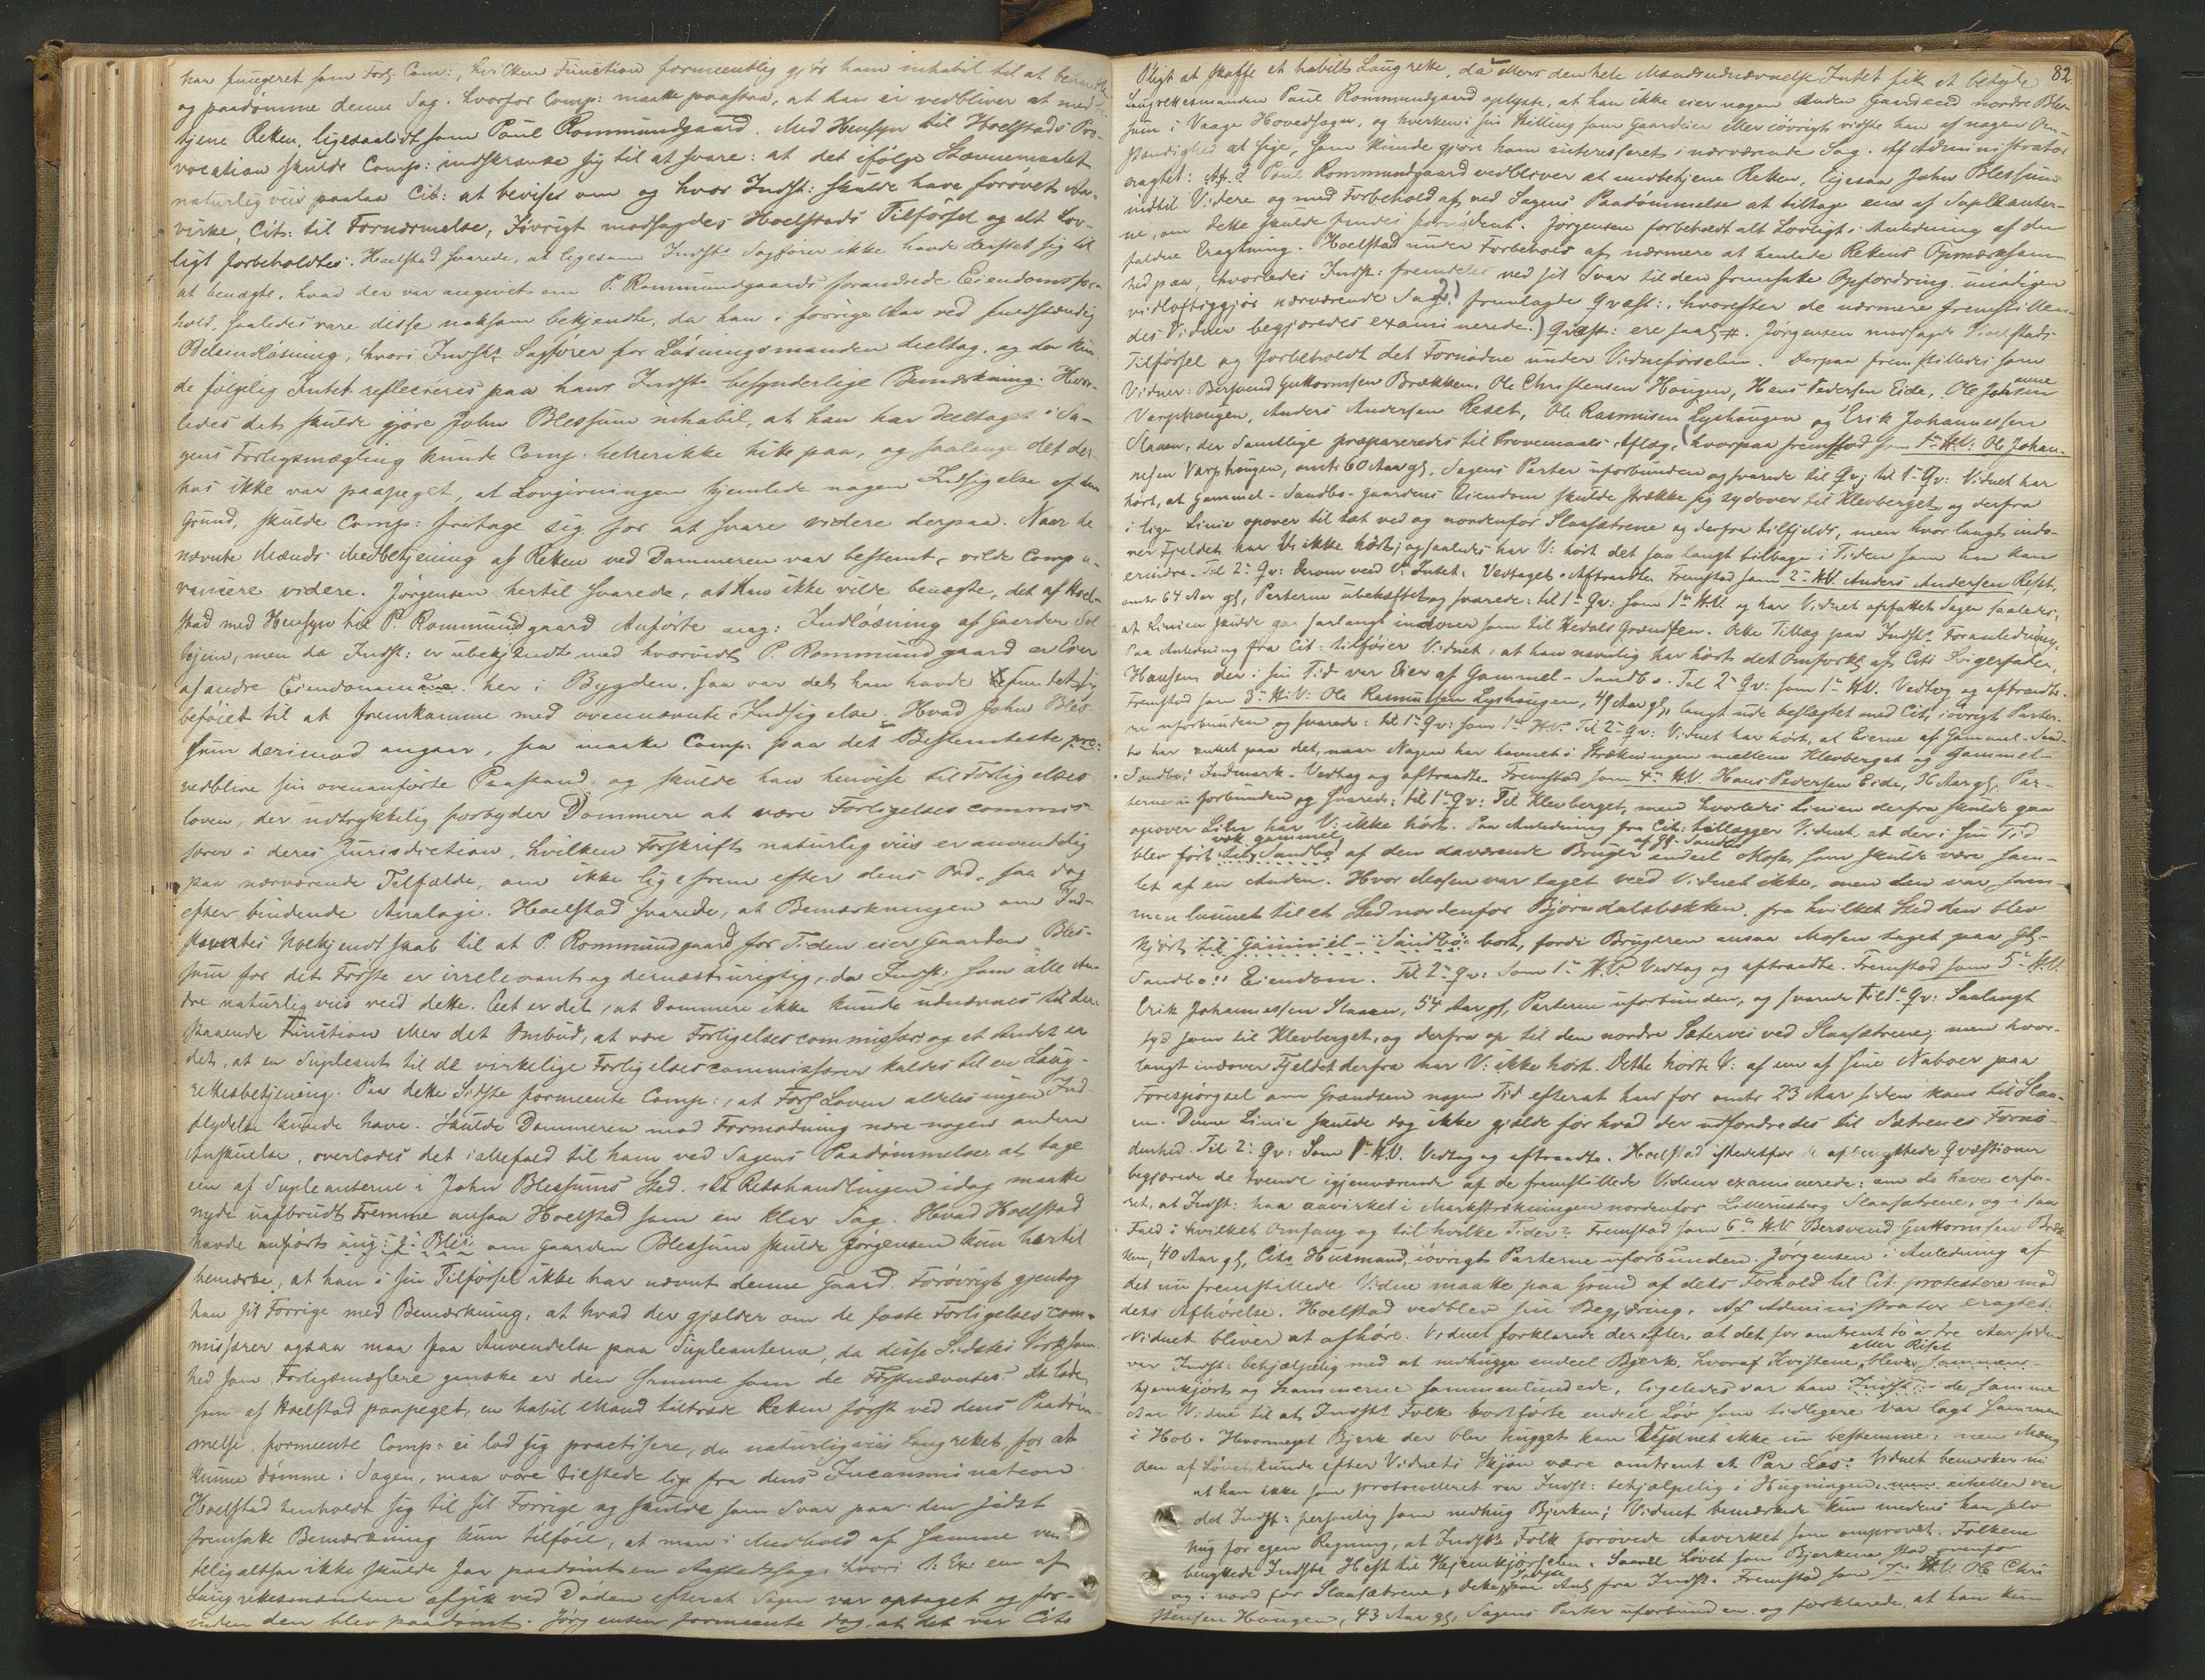 har fungeret som Forl. Com:, hvilken Function formeentlig gjør ham inhabil til at
og paadømme denne Sag. hvorfor Comp: maatte paastaa, at han ei vedbliver at med-
tjene Retten, ligesaalidt som Paul Rommundgaard. Med Hensyn til Hoelstads Pro-
vocation skulde Comp: indskrænke sig til at svare: at det ifølge Stævnemaalet
naturligviis paalaa Cit: at bevises om og hvor Indst: skulde have forøvet Aa-
virke, Cits: til Fornærmelse, Iøvrigt modsagdes Hoelstads Tilførsel og alt Lov-
ligt forbeholdtes. Hoelstad svarede, at ligesom Indst: Sagfører ikke havde
at benægte, hvad der var angivet om P. Rommundgaards forandrede Eiendomsfor-
hold, saaledes vare disse noksom bekjendte, da han i forrige Aar ved
Odelsindløsning, hvori Indsts Sagfører for Løsningsmanden deeltog, og der kun-
de følgelig Intet reflecteres paa hans Indsts besynderlige Bemærkning. Hvor-
ledes det skulde gjøre John Blessum inhabil, at han har deeltaget i Sa-
gens Forligsmægling kunde Comp: hellerikke hitte paa, og saalænge det der-
hos ikke var paapeget, at Lovgivningen hjemlede nogen Indsigelse af den
Grund, skulde Comp: fritage sig for at svare videre derpaa. Naar de
nævnte Mænds Medbetjening af Retten ved Dommeren var bestemt, vilde Comp a-
vancere videre. Jørgensen hertil svarede, at Han ikke vilde benægte, det af Hoel-
stad med Hensyn til P. Rommundgaard Anførte ang: Indløsning af Gaarden Sol-
hjem, men da Indst: er ubekjendt med hvorvidt P. Rommundgaard er Eier
af andre Eiendomme her i Bygden, saa var det han havde fundet sig
beføiet til at fremkomme med ovennævnte Indsigelse. Hvad John Bles-
sum derimod angaar, saa maatte Comp: paa det Bestemteste
vedblive sin ovenanførte Paastand og skulde han henvise til Forligelses-
loven, der udtrykkelig forbyder Dommere at være Forligelsescommis-
særer i deres Jurisdiction, hvilken Forskrift naturligviis er anvendelig
paa nærværende Tilfælde, om ikke ligefrem efter dens Ord, saa dog
efter bindende Analogi. Hoelstad svarede, at Bemærkningen om Ind-
stevntes Ubekjendtskab til at P. Rommundgaard for Tiden eier Gaarden Bles-
sum for det Første er irrelevant og dernæst urigtig, da Indst: som alle An-
dre naturligviis veed dette. Eet er det, at Dommere ikke kunde udnævnes til den
staaende Function eller det Ombud, at være Forligelsescommissær og et Andet er
det, at en Supleant til de virkelige Forligelsescommissærer kaldes til en Laug-
rettesbetjening. Paa dette Sidste formeente Comp:, at Forl Loven aldeles ingen Ind-
flydelse kunde have. Skulde Dommeren mod Formodning nære nogen anden
Anskuelse, overlodes det iallefald til ham ved Sagens Paadømmelse at tage
een af Supleanterne i John Blessums Sted. At Retshandlingen idag maatte
nyde uafbrudt Fremme ansaa Hoelstad som en klar Sag. Hvad Hoelstad
havde anført ang: om Gaarden Blessum skulde Jørgensen kun hertil
bemærke, at han i sin Tilførsel ikke har nævnt denne Gaard. Forøvrigt gjentog
han sit Forrige med Bemærkning, at hvad der gjælder om de faste Forligelsescom-
missærer ogsaa maa faa Anvendelse paa Supleanterne, da disse Sidstes Virksom-
hed som Forligsmæglere ganske er den samme som de Førstnævntes. At lade,
som af Hoelstad paapeget, en habil Mand tiltræde Retten først ved dens Paadøm-
melse, formeente Comp: ei lod sig practisere, da naturligviis Laugrettet, for at
kunne dømme i Sagen, maa være tilstede lige fra dens Incammination.
Hoelstad henholdt sig til sit Forrige og skulde som Svar paa den sidst
fremsatte Bemærkning kun tilføie, at man i Medhold af samme ven-
telig altsaa ikke skulde faa paadømt en Aastedssag, hvori f. Ex: een af
Laugrettesmændene afgik ved Døden efterat Sagen var optaget og for-
inden den blev paadømt. Jørgensen formeente dog, at det var Cits
Pligt at skaffe et habilt Laugrette, da ellers den hele Mandsudnævnelse Intet fik at betyde. 82
Laugrettesmanden Paul Rommundgaard oplyste, at han ikke eier nogen anden Gaard end nordre Bles-
sum i Vaage Hovedsogn, og hverken i sin Stilling som Gaardeier eller iøvrigt vidste han af nogen Om-
stændighed at sige, som kunde gjøre ham interesseret i nærværende Sag. Af Administrator
eragtet: Paul Rommundgaard vedbliver at medbetjene Retten, ligesaa John Blessum
indtil Videre og med Forbehold af, ved Sagens Paadømmelse at tiltage een af Supleanter-
ne, om dette skulde findes fornødent. Jørgensen forbeholdt alt Lovligt i Anledning af den
faldne Eragtning. Hoelstad under Forbehold af, nærmere at henlede Rettens Opmærksom-
hed paa, hvorledes Indst: fremdeles ved sit Svar til den fremsatte Opfordring unødigen
vidløftiggjør nærværende Sag. 2) fremlagde Qvæst:, hvorefter de nærmere fremstillen-
des Vidner begjæredes examinerede. Qvæst: ere saal #. Jørgensen modsagde Hoelstads
Tilførsel og forbeholdt det Fornødne under Vidneførselen. Derpaa fremstilledes som
Vidner: Bersvend Guttormsen Brækken, Ole Christensen Haugen, Hans Pedersen Eide, Ole Johannesen
Varphaugen, Anders Andersen Reset, Ole Rasmusen Lyshaugen og Erik Johannessen
Slaaen, der samtlige præpareredes til Provemaals Aflæg, hvorpaa fremstod som 1ste H.V: Ole Johan-
nesen Varphaugen, omtr 60 Aar gl, Sagens Parter uforbunden og svarede til Qv; til 1ste Qv: Vidnet har
hørt, at Gammel-Sandbo-Gaardens Eiendom skulde strække sig sydover til Klevberget, og derfra
i lige Linie opover til tæt ved og nordenfor Slaasætrene og derfra tilfjelds, men hvor langt inda-
ver Fjeldet har V: ikke hørt; og saaledes har V: hørt det saa langt tilbage i Tiden som han kan
erindre. Til 2. Qv: Derom veed V: Intet. Vedtaget. Aftraadte. Fremstod som 2. H.V. Anders Andersen Reset,
omtr 64 Aar gl, Parterne ubeslægtet og svarede: til 1ste Qv: som 1ste H.V. og har Vidnet opfattet Sagen saaledes,
at Linien skulde gaa saalangt indover som til Hedals Grændsen. Dette Tillæg paa Indsts Foranledning.
Paa Anledning fra Cit: tilføier Vidnet, at han navnlig har hørt det Omforkl. af Cits Svigerfader,
Hansen, der i sin Tid var Eier af Gammel-Sandbo. Til 2. Qv: som 1ste H.V. Vedtog og aftraadte.
Fremstod som 3. H.V: Ole Rasmusen Lyshaugen, 49 Aar gl, langt ude beslægtet med Cit, iøvrigt Parter-
ne uforbunden og svarede: til 1ste Qv: som 1ste H.V. Til 2. Qv: Vidnet har hørt, at Eierne af Gammel-Sand-
bo har anket paa det, naar Nogen har havnet i Strækningen mellem Klevberget og Gammel-
Sandbos Indmark. Vedtog og aftraadte. Fremstod som 4. H.V. Hans Pedersen Eide, 36 Aar gl, Par-
terne uforbunden og svarede: til 1ste Qv: Til Klevberget, men hvorledes Linien derfra skulde gaa
opover Lien har V: ikke hørt. Paa Anledning fra Cit: tillægger Vidnet, at der i sin Tid
blev ført til Sandbo af den daværende Bruger af Gl. Sandbo endeel Mose, som skulde være sam-
let af en Anden. Hvor Mosen var taget veed Vidnet ikke, men den var sam-
men lunnet til et Sted nordenfor Bjørndalsbækken, fra hvilket Sted den blev
kjørt til Gammel-Sandbo bort, fordi Brugeren ansaa Mosen taget paa Gl-
Sandbo's Eiendom. Til 2. Qv: Som 1ste H.V. Vedtog og aftraadte. Fremstod som 5. H.V.
Erik Johannessen Slaaen, 54 Aar gl, Parterne uforbunden, og svarede Til 1ste Qv: Saalangt
syd som til Klevberget, og derfra op til den nordre Sætervei ved Slaasætrene; men hvor-
langt indover Fjeldet derfra har V: ikke hørt. Dette hørte V: af en af sine Naboer paa
Forespørgsel om Grændsen nogen Tid efterat han for omtr 23 Aar siden kom til Slaa-
en. Denne Linie skulde dog ikke gjælde for hvad der udfordredes til Sætrenes Fornø-
denhed. Til 2. Qv: Som 1ste H.V. Vedtog og aftraadte. Hoelstad istedetfor Qvæstioner
begjærede de tvende igjenværende af de fremstillede Vidner examinerede: om de have erfa-
ret, at Indst: har aavirket i Markstrækningen nordenfor og Slaasætrene, og i saa
Fald i hvilket Omfang og til hvilke Tider? Fremstod som 6. H.V. Bersvend Guttormsen Bræk-
ken, 40 Aar gl, Cits Husmand, iøvrigt Parterne uforbunden. Jørgensen i Anledning af
det nu fremstillede Vidne maatte paa Grund af dets Forhold til Cit. protestere mod
dets Afhørelse. Hoelstad vedblev sin Begjæring. Af Administrator eragtes:
Vidnet bliver at afhøre. Vidnet forklarede derefter, at det for omtrent to a tre Aar siden
var Indst: behjælpelig med at nedhugge endeel Bjerk, hvoraf Kvistene eller Riset blev sammen-
hjemkjørt og Stammerne sammenlunnede, ligeledes var han i de samme
Aar Vidne til at Indsts Folk bortførte endeel Løv som tidligere var lagt sammen
i Hob. Hvormeget Bjerk der blev hugget kan Vidnet ikke nu bestemme, men Mæng-
den af Løvet kunde efter Vidnets Skjøn være omtrent et Par Læs. Vidnet bemærker nu
at han ikke som protocolleret var Indst: behjælpelig i Hugningen, eiheller var
det Indst: personlig som nedhug Bjerken; Vidnet bemærkede kun medens han selv
hug for egen Regning, at Indsts Folk forøvede Aavirket som omprovet. Folkene
benyttede Indsts Hest til Hjemkjørselen. Saavel Løvet som Bjerkene stod ovenfor
og i nord for Slaasætrene. Dette paa Anl fra Indst. Fremstod som 7. H.V. Ole Chri-
stensen Haugen, 43 Aar gl, Sagens Parter uforbunden og forklarede, at han kun